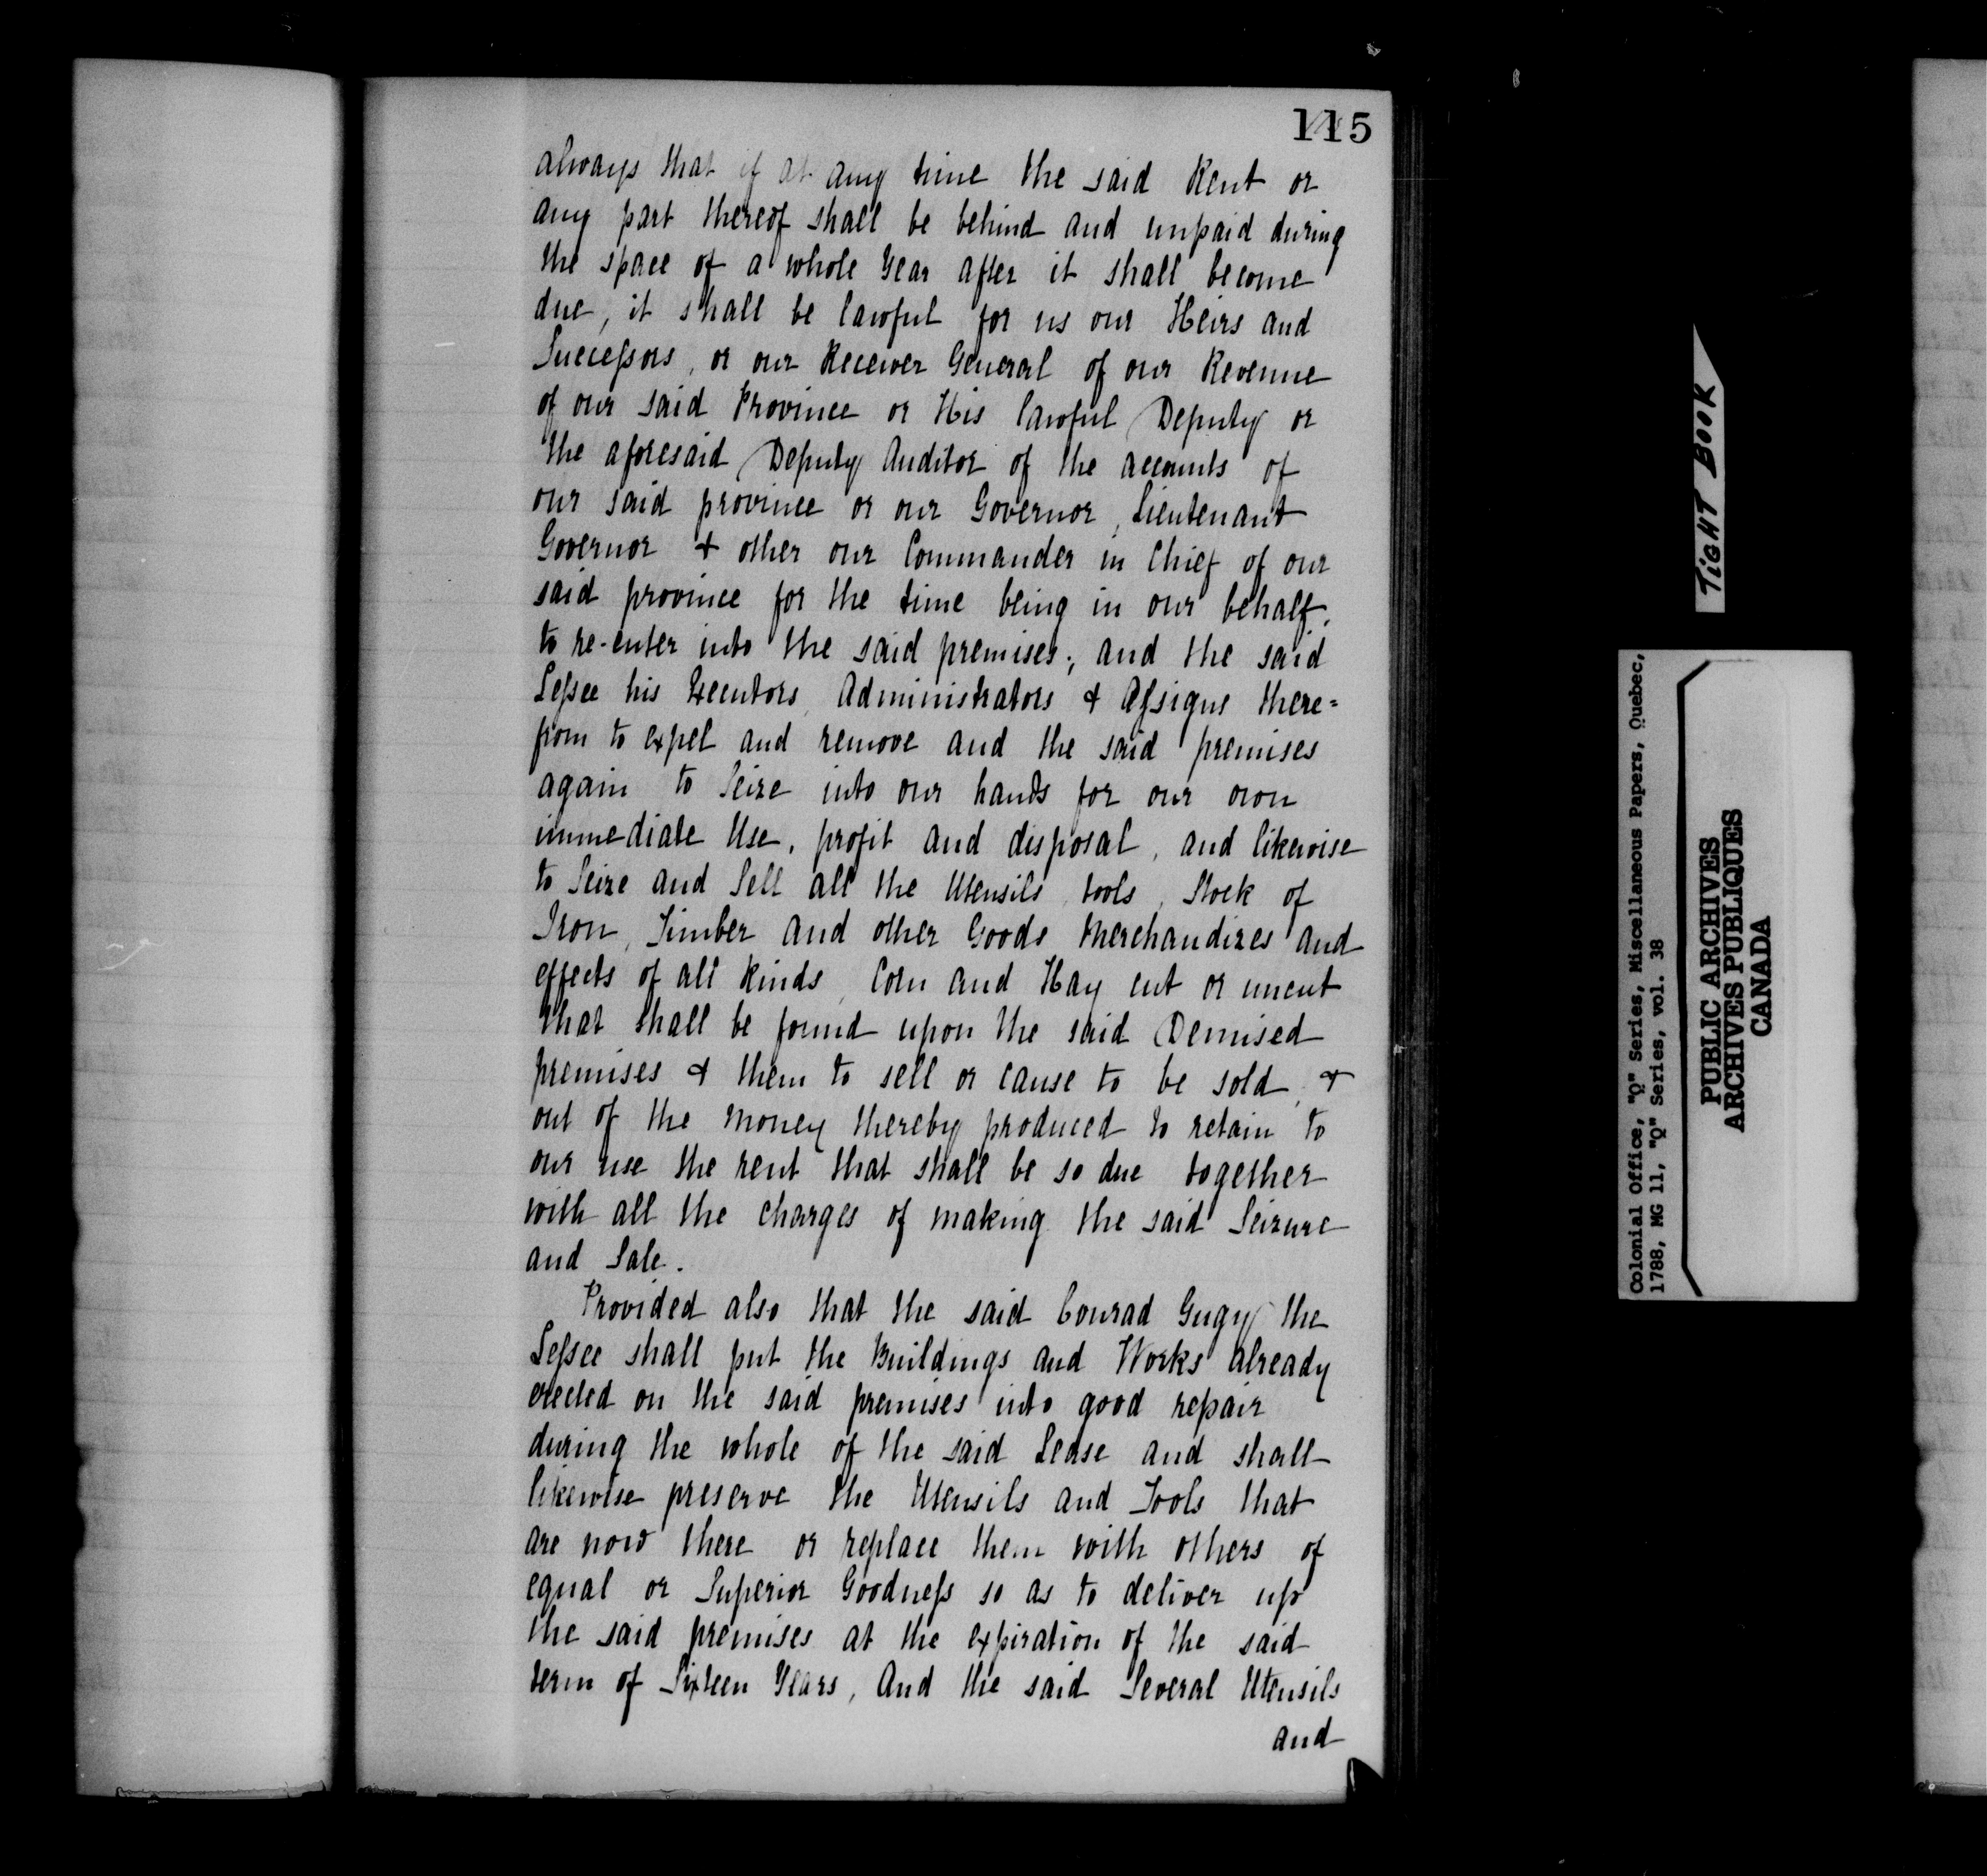 115
always that if at any time the said Rent or
any part thereof shall be behind and unpaid during
the space of a whole Year after it shall become
due, it shall be lawful for us our Heirs and
Successors, or our Receiver General of our Revenue
of our said Province or His lawful Deputy or
the aforesaid Deputy Auditor of the accounts of
our said province or our Governor, Lieutenant
Governor & other our Commander in Chief of our
said province for the time being in our behalf,
to re-enter into the said premises; and the said
Lessee his Executors, Administrators & Assigns there=
from to expel and remove and the said premises
again to Seize into our hands for our own
immediate Use, profit and disposal, and likewise
to Seize and Sell all the Utensils, tools, Stock of
Iron, Timber and other Goods Merchandizes and
effects of all kinds, Corn and Hay cut or uncut
that shall be found upon the said Demised
premises & them to sell or cause to be sold, &
out of the money thereby produced to retain to
our use the rent that shall be so due together
with all the charges of making the said Seizure
and Sale.
Provided also that the said Conrad Gugy the
Lessee shall put the Buildings and Works already
erected on the said premises into good repair
during the whole of the said Lease and shall
likewise preserve the Utensils and Tools that
are now there or replace them with others of
equal or Superior Goodness so as to deliver up
the said premises at the expiration of the said
term of Sixteen Years, And the said Several Utensils
and
TIGHT BOOK
Colonial Office, "Q" Series, Miscellaneous Papers, Quebec,
1788, MG 11, "Q" Series, vol. 38
PUBLIC ARCHIVES
ARCHIVES PUBLIQUES
CANADA